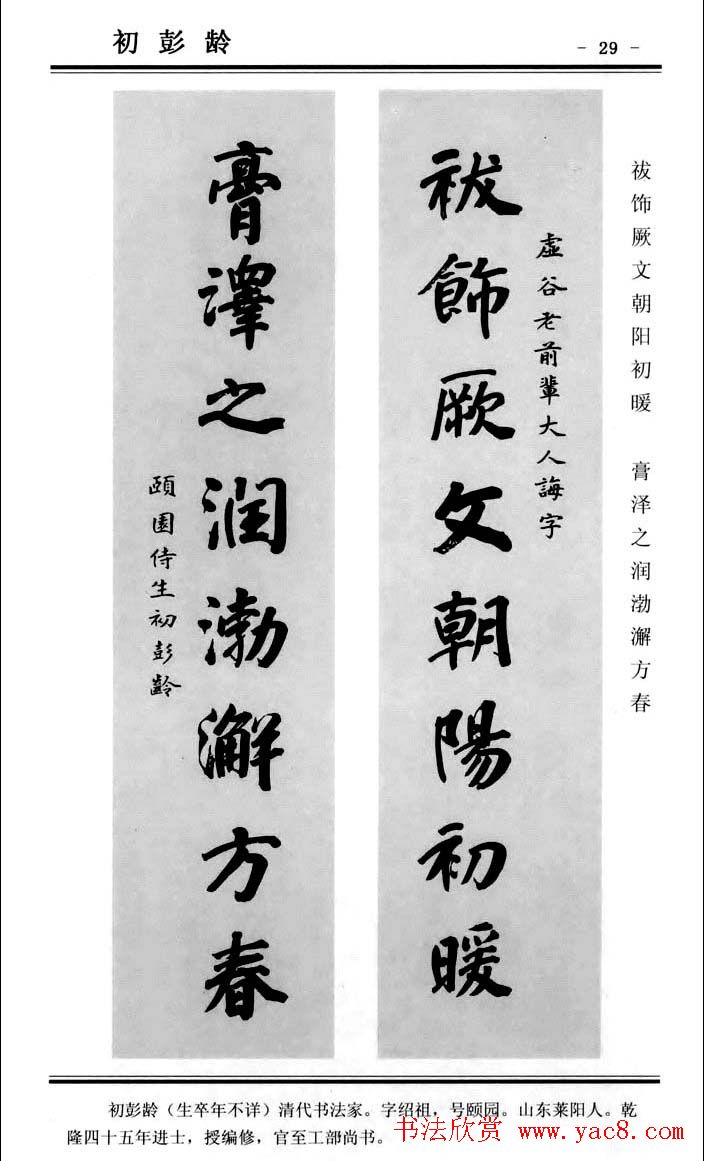 初彭龄
- 29 -
祓饰厥文朝阳初暖 膏泽之润渤澥方春
虛谷老前輩大人誨字
祓飾厥文朝陽初暖
膏澤之润渤澥方春
頤園侍生初彭齡
初彭龄（生卒年不详）清代书法家。字绍祖，号颐园。山东莱阳人。乾
隆四十五年进士，授编修，官至工部尚书。
书法欣赏 www.yac8.com